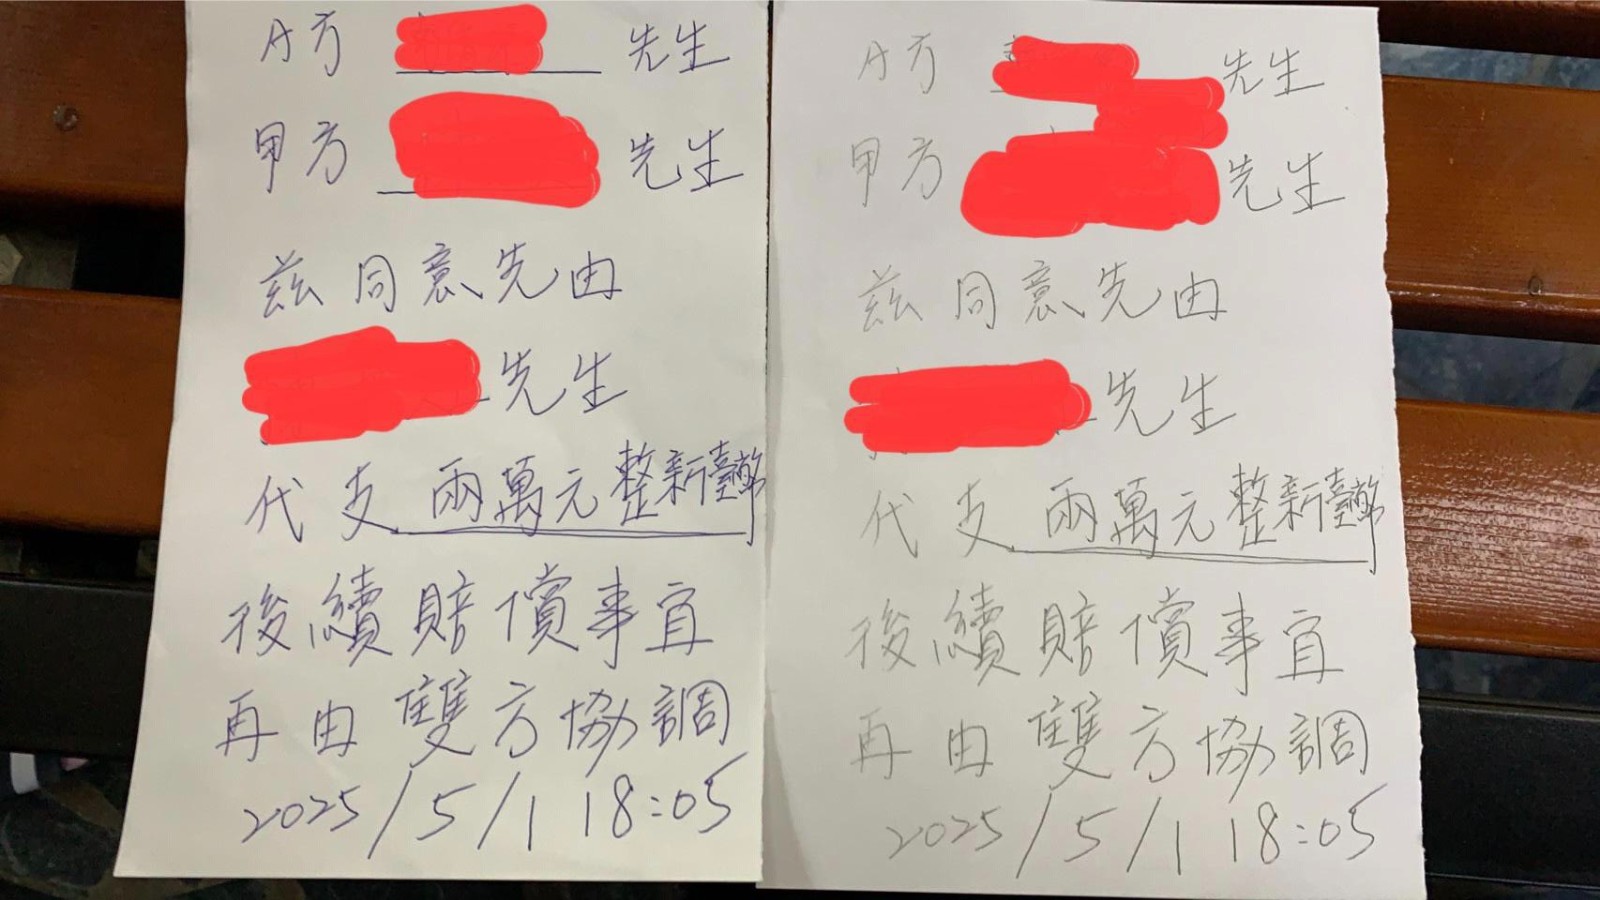 A方 先生
甲方 先生
茲同意先由
先生
代支 兩萬元整新臺幣
後續賠償事宜
再由雙方協調
2025/5/1 18:05
A方 先生
甲方 先生
茲同意先由
先生
代支 兩萬元整新臺幣
後續賠償事宜
再由雙方協調
2025/5/1 18:05